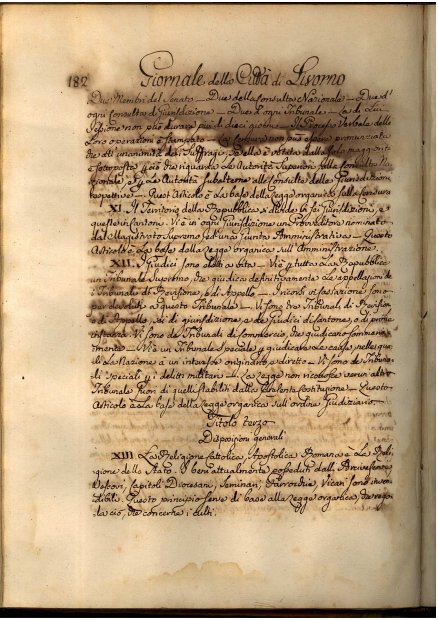 182 Giornale della Città di Livorno
Due Membri del Senato — Due della Consulta Nazionale — Due d'
ogni Consulta di Giurisdizione — Due d'ogni Tribunale — La di Lui
Sessione non può durare più di dieci giorni — Il Processo Verbale delle
Loro operazioni è stampato — La Censura non può esser pronunziata
che all' unanimità dei Suffragj, se ella è votata dalla maggiorità
e sottoposta per ciò che riguarda Le Autorità Superiori alla Consulta Na-
zionale, e per Le Autorità subalterne alle Consulte delle Giurisdizioni
rispettive — Quest' Articolo è La base della Legge organica sulla Censura
XI. Il Territorio della Repubblica è diviso in sei Giurisdizioni, e
queste in Cantoni. Vi è in ogni Giurisdizione un Provveditore nominato
dal Magistrato Supremo, ed una Giunta Amministrativa — Questo
Articolo è La base della Legge organica sull' Amministrazione.
XII. I Giudici sono eletti a vita — Vi è per tutta La Repubblica
un Tribunale Supremo, che giudica definitivamente Le appellazioni dei
Tribunali di Revisione, e di Appello — I ricorsi di Cassazione sono
portati a questo Tribunale — Vi sono tre Tribunali di Revisione
e di Appello, sei di Giurisdizione, e dei Giudici di Cantone, o di prima
istanza. Vi sono dei Tribunali di Commercio, che giudicano sommaria-
mente — Vi è un Tribunale speciale per giudicare Le cause, nelle qua-
li La Nazione à un interesse originario, e diretto. Vi sono dei Tribuna-
li speciali per i delitti militari — La Legge non riconosce verun altro
Tribunale fuori di quelli stabiliti dalla presente Costituzione — Questo
Articolo è La base della Legge organica sull' ordine Giudiziario.
Titolo terzo
Disposizioni generali
XIII. La Religione Cattolica, Apostolica Romana è La Reli-
gione dello Stato. I beni attualmente posseduti dall' Arcivescovo,
Vescovi, Capitoli Diocesani, Seminarj, Parrocchie, Vicari sono inven-
dibili. Questo principio serve di base alla Legge organica, che rego-
la ciò, che concerne i Culti.